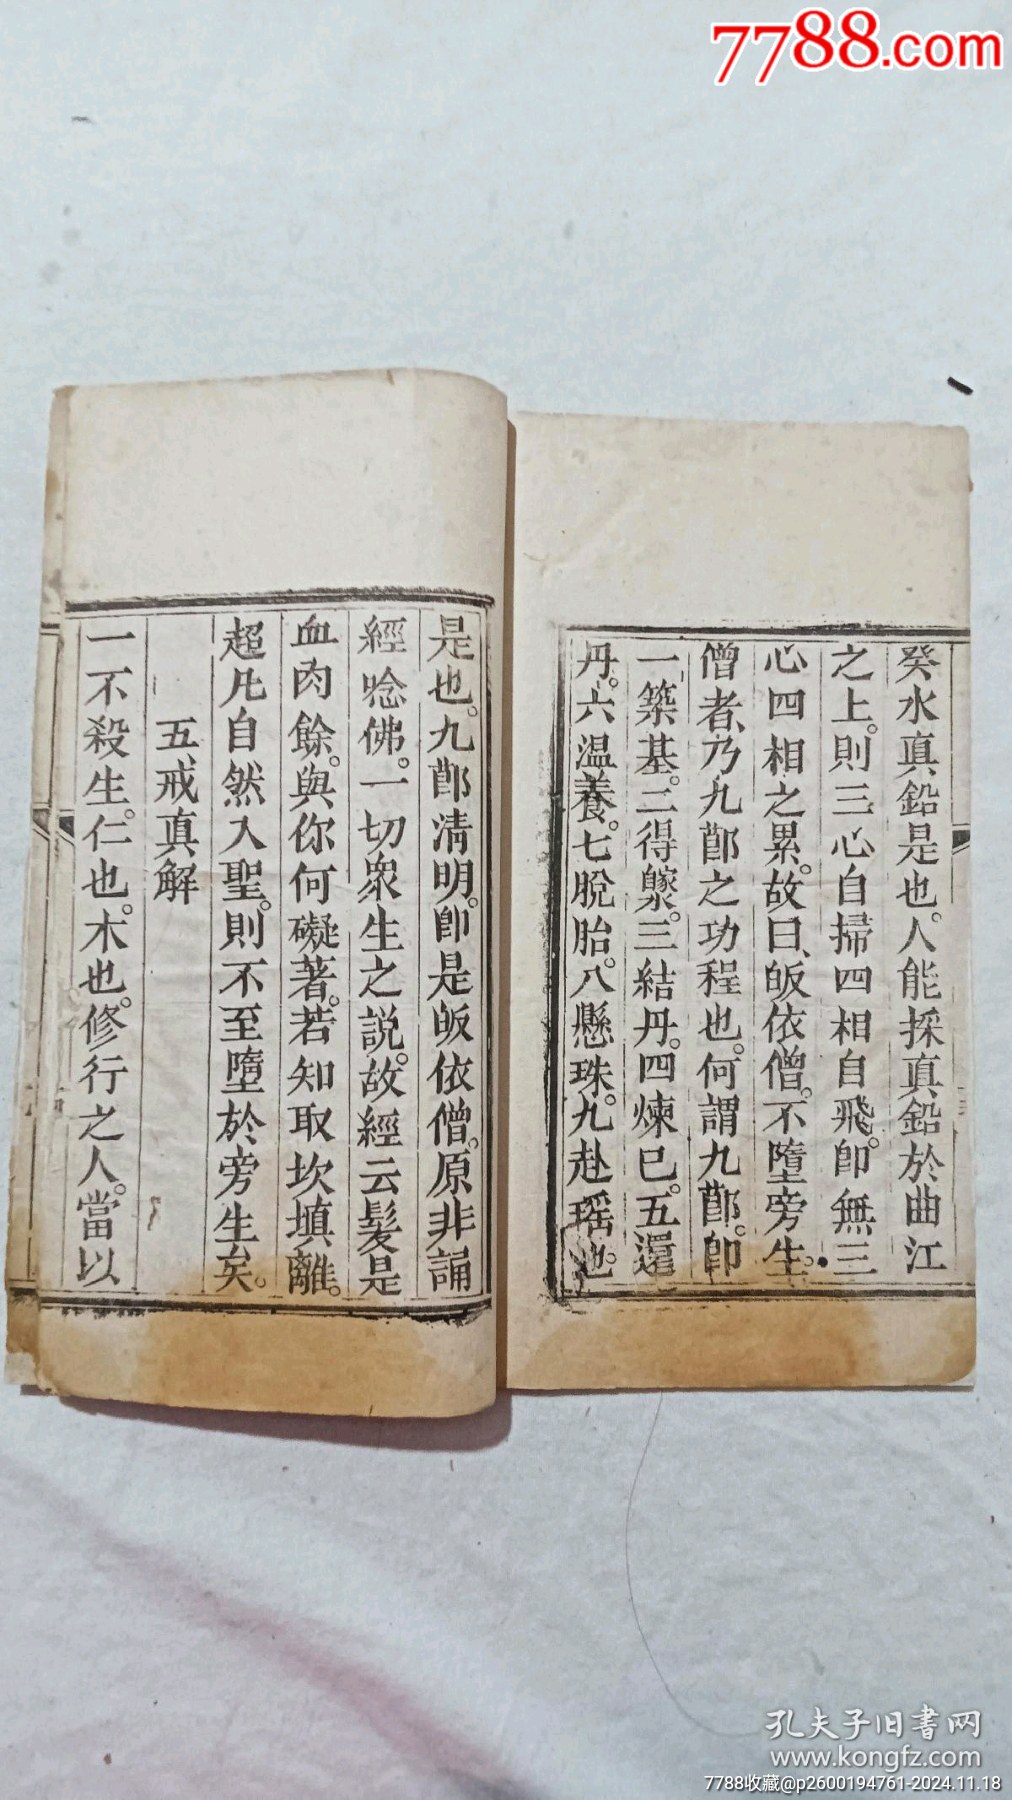 7788.com
癸水真鉛是也。人能採真鉛於曲江
之上。則三心自掃四相自飛。卽無三
心四相之累。故曰、皈依僧。不墮旁生。
僧者、乃九鄮之功程也。何謂九鄮。卽
一築基。二得藥。三結丹。四煉已。五還
丹。六温養。七脫胎。八懸珠。九赴瑶池。
是也。九鄮清明。卽是皈依僧。原非誦
經唸佛。一切眾生之說。故經云髮是
血肉餘。與你何礙著。若知取坎填離。
超凡自然入聖。則不至墮於旁生矣。
五戒真解
一不殺生。仁也。木也。修行之人。當以
孔夫子旧書网
www.kongfz.com
7788收藏@p2600194761-2024.11.18